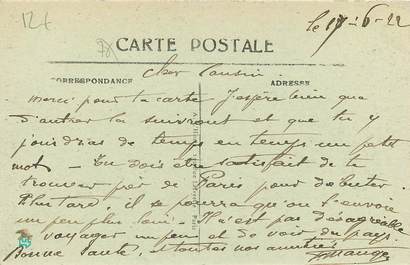 12f
le 17-6-22
CARTE POSTALE
CORRESPONDANCE
ADRESSE
Cher Cousin
Merci pour ta carte J'espère bien que
d'autre la suivront et que tu y
joindras de temps en temps un petit
mot - Tu dois être satisfait de te
trouver près de Paris pour débuter
Plus tard, il se pourra qu'on t'envoie
un peu plus loin. Il n'est pas désagréable
voyager un peu et de voir du pays.
Bonne santé, et toutes nos amitiés